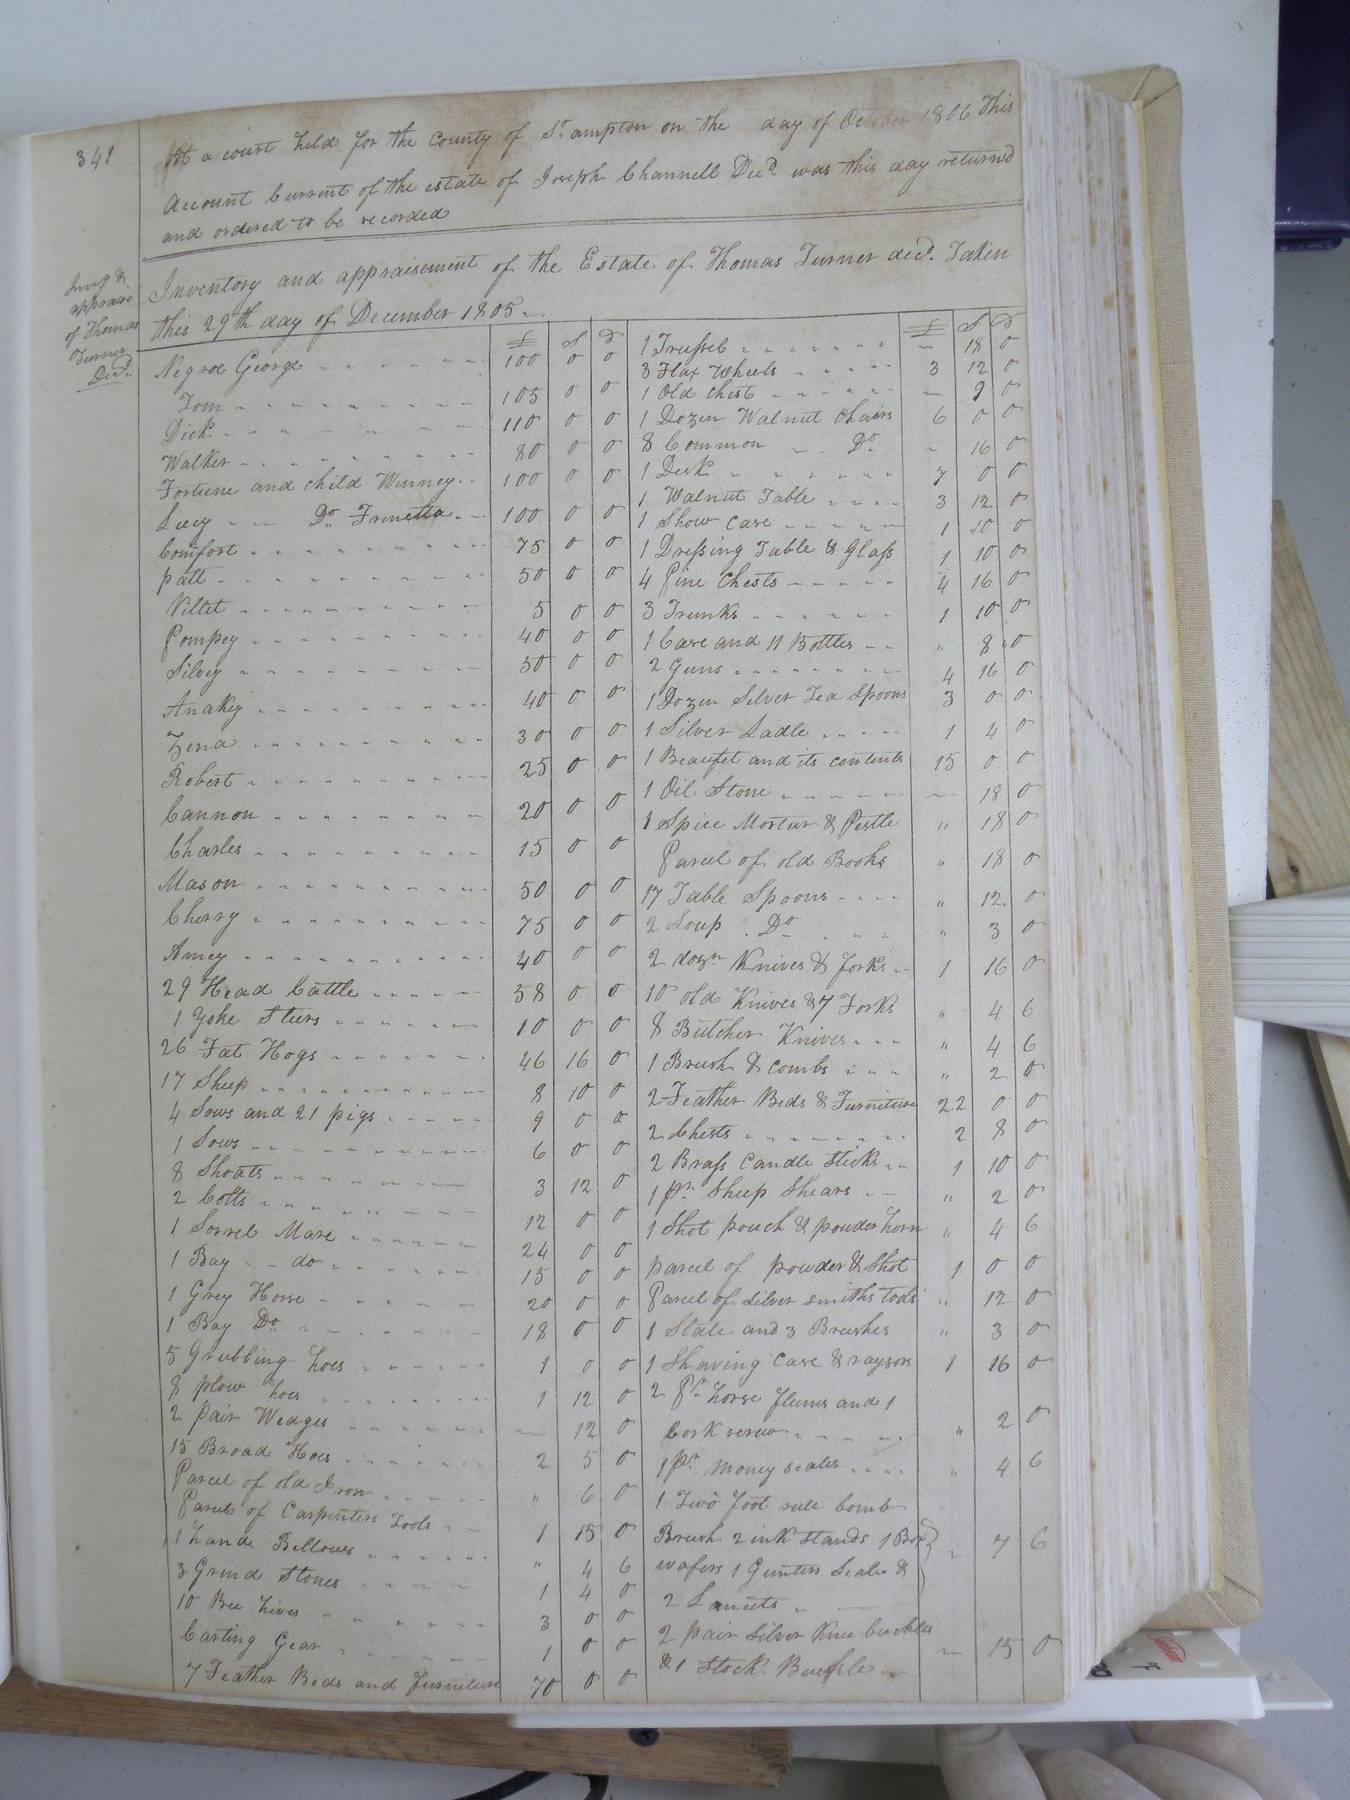 341
At a court held for the County of St.ampton on the day of October 1806 This
Account Current of the estate of Joseph Channell Decd. was this day returned
and ordered to be recorded
Invy &
appraise
of Thomas
Turner
Decd.
Inventory and appraisement of the Estate of Thomas Turner decd. Taken
this 29th day of December 1805
£ S D
Negroe George 100 0 0
Tom 105 0 0
Dick 110 0 0
Walker 80 0 0
Fortune and child Winney 100 0 0
Lucy Do. 100 0 0
Comfort 75 0 0
patt 50 0 0
5 0 0
Pompey 40 0 0
Silvey 50 0 0
Anakey 40 0 0
Zena 30 0 0
Robert 25 0 0
Cannon 20 0 0
Charles 15 0 0
Mason 50 0 0
Cherry 75 0 0
Amey 40 0 0
29 Head Cattle 58 0 0
1 Yoke Steers 10 0 0
26 Fat Hogs 46 16 0
17 Sheep 8 10 0
4 Sows and 21 pigs 9 0 0
1 Sows 6 0 0
8 Shoats 3 12 0
2 Colts 12 0 0
1 Sorrel Mare 24 0 0
1 Bay do 15 0 0
1 Grey Horse 20 0 0
1 Bay Do. 18 0 0
5 Grubbing hoes 1 0 0
8 plow hoes 1 12 0
2 pair Wedges 12 0
15 Broad Hoes 2 5 0
Parcel of old Iron " 6 0
Parcel of Carpenters Tools 1 15 0
1 hand Bellows " 4 6
3 Grind Stones 1 4 0
10 Bee hives 3 0 0
Carting Gear 1 0 0
7 Feather Beds and furniture 70 0 0
£ S D
1 Trussel 18 0
3 Flax Wheels 3 12 0
1 Old Chest 9 0
1 Dozen Walnut Chairs 6 0 0
8 Common Do 16 0
1 Desk 7 0 0
1 Walnut Table 3 12 0
1 Show Case 1 10 0
1 Dressing Table & Glass 1 10 0
4 Pine Chests 4 16 0
3 Trunks 1 10 0
1 Case and 11 Bottles " 8 0
2 Guns 4 16 0
1 Dozen Silver Tea Spoons 3 0 0
1 Silver Ladle 1 4 0
1 Beaufet and its contents 15 0 0
1 Oil Stone 18 0
1 Spice Mortar & Pestle " 18 0
Parcel of old Books " 18 0
17 Table Spoons " 12 0
2 Soup Do " 3 0
2 dozn Knives & forks 1 16 0
10 old Knives & 7 Forks " 4 6
8 Butcher Knives " 4 6
1 Brush & combs " 2 0
2 Feather Beds & Furniture 22 0 0
2 Chests 2 8 0
2 Brass Candle Sticks 1 10 0
1 pr. Sheep Shears " 2 0
1 Shot pouch & powder horn " 4 6
parcel of powder & Shot 1 0 0
Parcel of silver smiths tools " 12 0
1 Slate and 3 Brushes " 3 0
1 Shaving Case & raysors 1 16 0
2 Pr. horse flems and 1
Cork screw " 2 0
1 pr. money scales " 4 6
1 Two foot rule comb
Brush 2 ink stands 1 Box
wafers 1 Gunters Scale & 7 6
2 Lancets
2 pair Silver Knee buckles
& 1 Stock Buckle 15 0